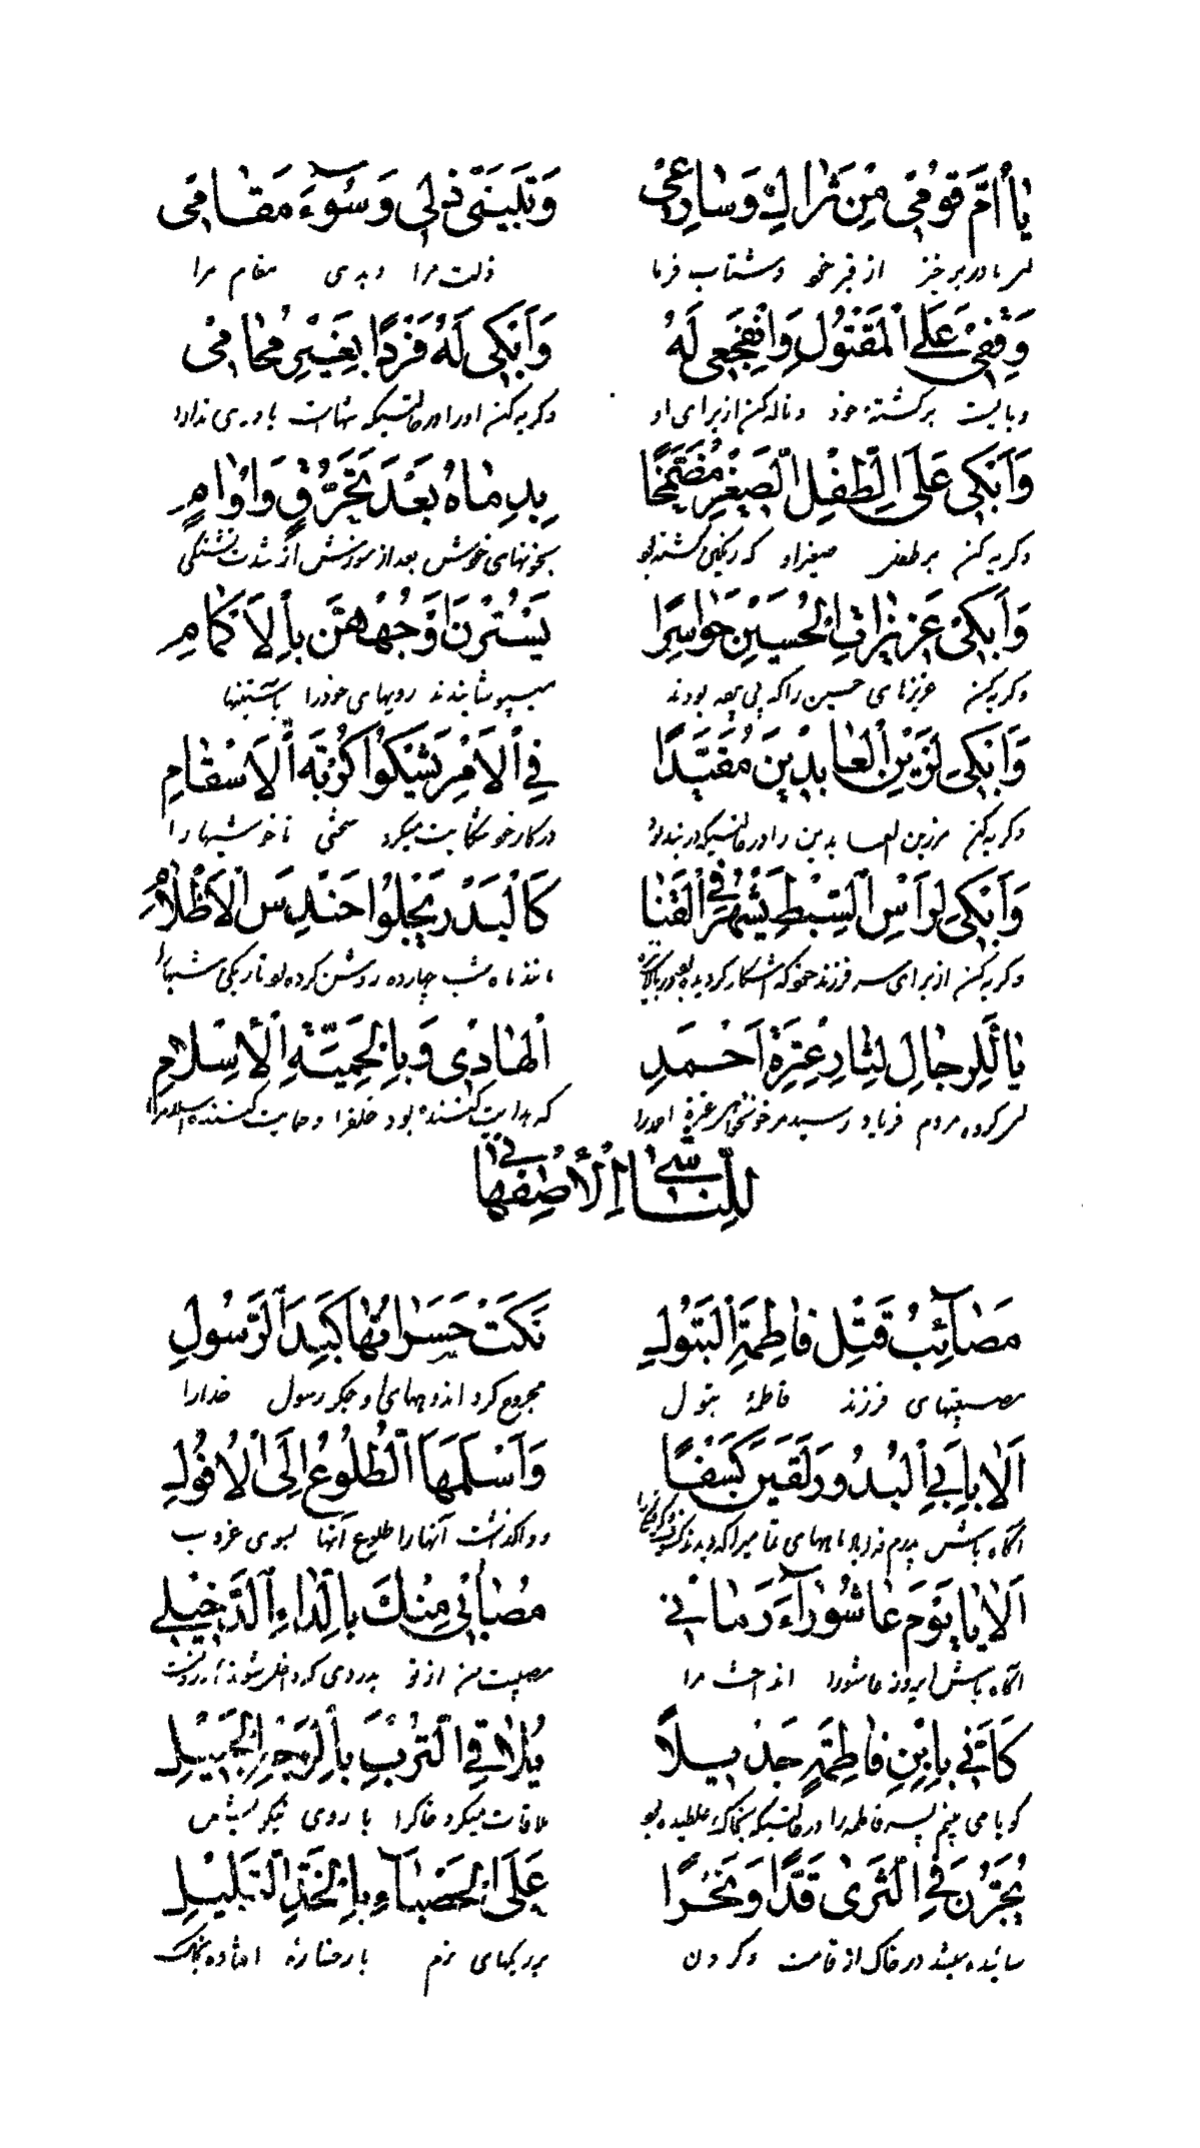 يٰا أُمَّ قُومي مِنْ ثَراكِ وَسٰارِعي وَتَبَيَّني ذُلّي وَسُوۤءَ مَقٰامي
ای مادر برخیز از قبر خود و شتاب فرما ذلت مرا و بدی مقام مرا
وَقِفي عَلَى الْمَقْتُولِ وَانْفَجِعي لَهُ وَابْكي لَهُ فَرْدًا بِغَيْرِ مُحٰامي
و بایست بر کشته خود و ناله کن از برای او و گریه کن او را در حالتیکه تنهاست یاوری ندارد
وَابْكي عَلَى الطِّفْلِ الصَّغيرِ مُضَمَّخًا بِدِمٰاهُ بَعْدَ تَحَرُّقٍ وَاُوٰامِ
و گریه کن بر طفل صغیر او که رنگین گشته بود بخونهای خویش بعد از سوزش از شدت تشنگی
وَابْكي عَزيزاتِ الْحُسَيْنِ حَوٰاسِرًا يَسْتُرْنَ اَوْجُهَهُنَّ بِالْاَكْمٰامِ
و گریه کن عزیزهای حسین را که بودند میپوشانیدند رویهای خود را بآستینها
وَابْكي لِزَيْنِ الْعٰابِدينَ مُقَيَّدًا فِي الْاَمْرِ يَشْكُوا كُرْبَةَ الْاَسْقٰامِ
و گریه کن بر زین العابدین را در حالتیکه در بند بود در کار خود شکایت میکرد سختی ناخوشیها را
وَابْكي لِرَأْسِ السِّبْطِ يُشْهَرُ فِي الْقَنٰا كَالْبَدْرِ يَجْلُوا حَنْدِسَ الْاَظْلٰامِ
و گریه کن از برای سر فرزند خود که آشکار گردیده بود مانند ماه شب چهارده روشن کرده بود تاریکی شبها را
يٰا لَلرِّجٰالِ لِثٰارِ عِتْرَةِ اَحْمَدِ الْهٰادي وَبِالْحَمِيَّةِ الْاِسْلٰامِ
ای گروه مردم فریاد رسید مر خونخواهی عترة احمد را که هدایت کننده بود خلق را و حمایت کننده اسلام را
لِلنّٰاشي الْاِصْفَهٰاني
مَصٰاۤئِبُ قَتْلِ فٰاطِمَةَ الْبَتُولِ نَكَتْ حَسَرٰاتُهٰا كَبِدَ الرَّسُولِ
مصیبتهای فرزند فاطمهٔ بتول مجروح کرد اندوههای او جگر رسول خدا را
اَلٰا بِاَبِي الْبُدُورِ لَقينَ كَسْفًا وَاَسْلَمَهَا الطُّلُوعُ اِلَى الْاُفُولِ
آگاه باش پدرم فدای ماههای و واگذاشت آنها را طلوع آنها بسوی غروب
اَلٰا يٰا يَوْمَ عٰاشُورٰاۤءَ رَمٰاني مُصٰابي مِنْكَ بِالدّٰاءِ الدَّخيلِ
آگاه باش ای روز عاشورا انداخت مرا مصیبت من از تو بدردی که داخل شونده
كَاَنّي بِابْنِ فٰاطِمَةٍ جَديلًا يُلٰاقي التُّرْبَ بِالْوَجْهِ الْجَميلِ
گویا می بینم پسر فاطمه را در حالتیکه بخاک غلطیده بود ملاقات میکرد خاک را با روی نیکویش
يُجَرِّرْنَ فِي الثَّرٰى قَدًّا وَنَحْرًا عَلَى الْحَصْبٰاۤءِ بِالْخَدِّ التَّليلِ
در خاک از قامت و گردن بر ریگهای نرم با رخساره افتاده بخاک